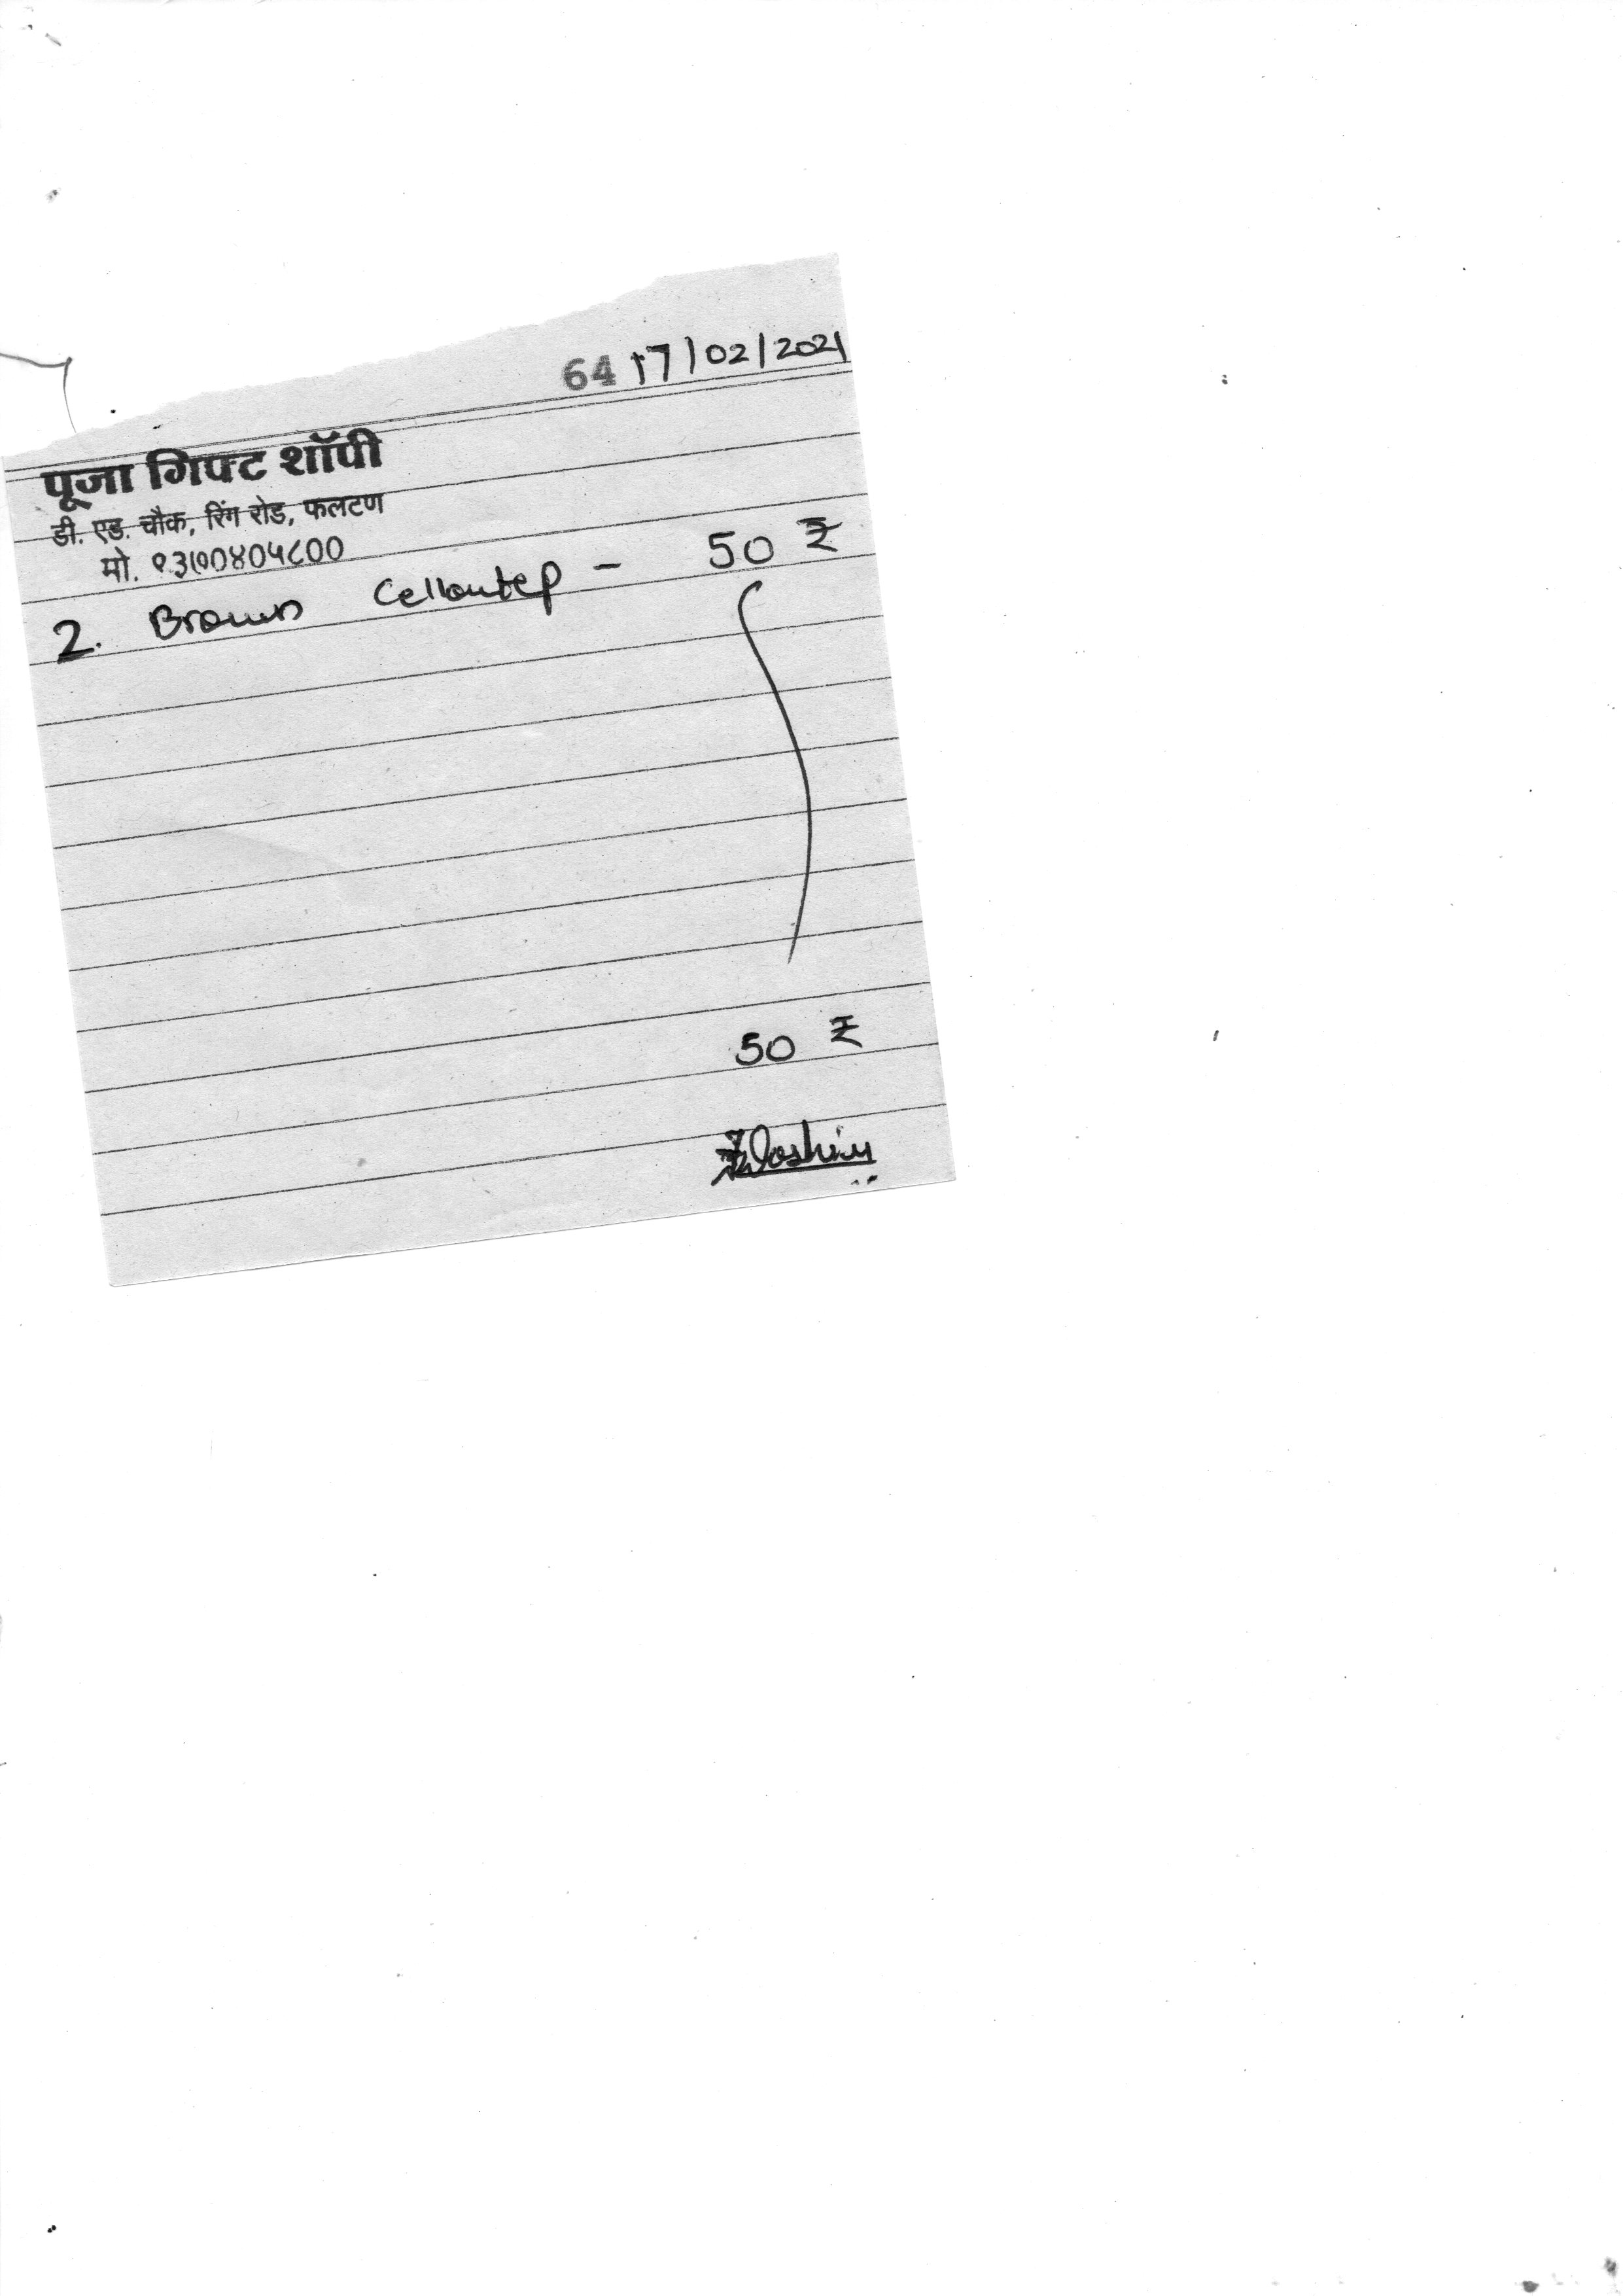 64 17/02/2021
पूजा गिफ्ट शॉपी
डी. एड. चौक, रिंग रोड, फलटण
मो. ९३७०४०५८००
2. Brown Cellowtep - 50 ₹
50 ₹